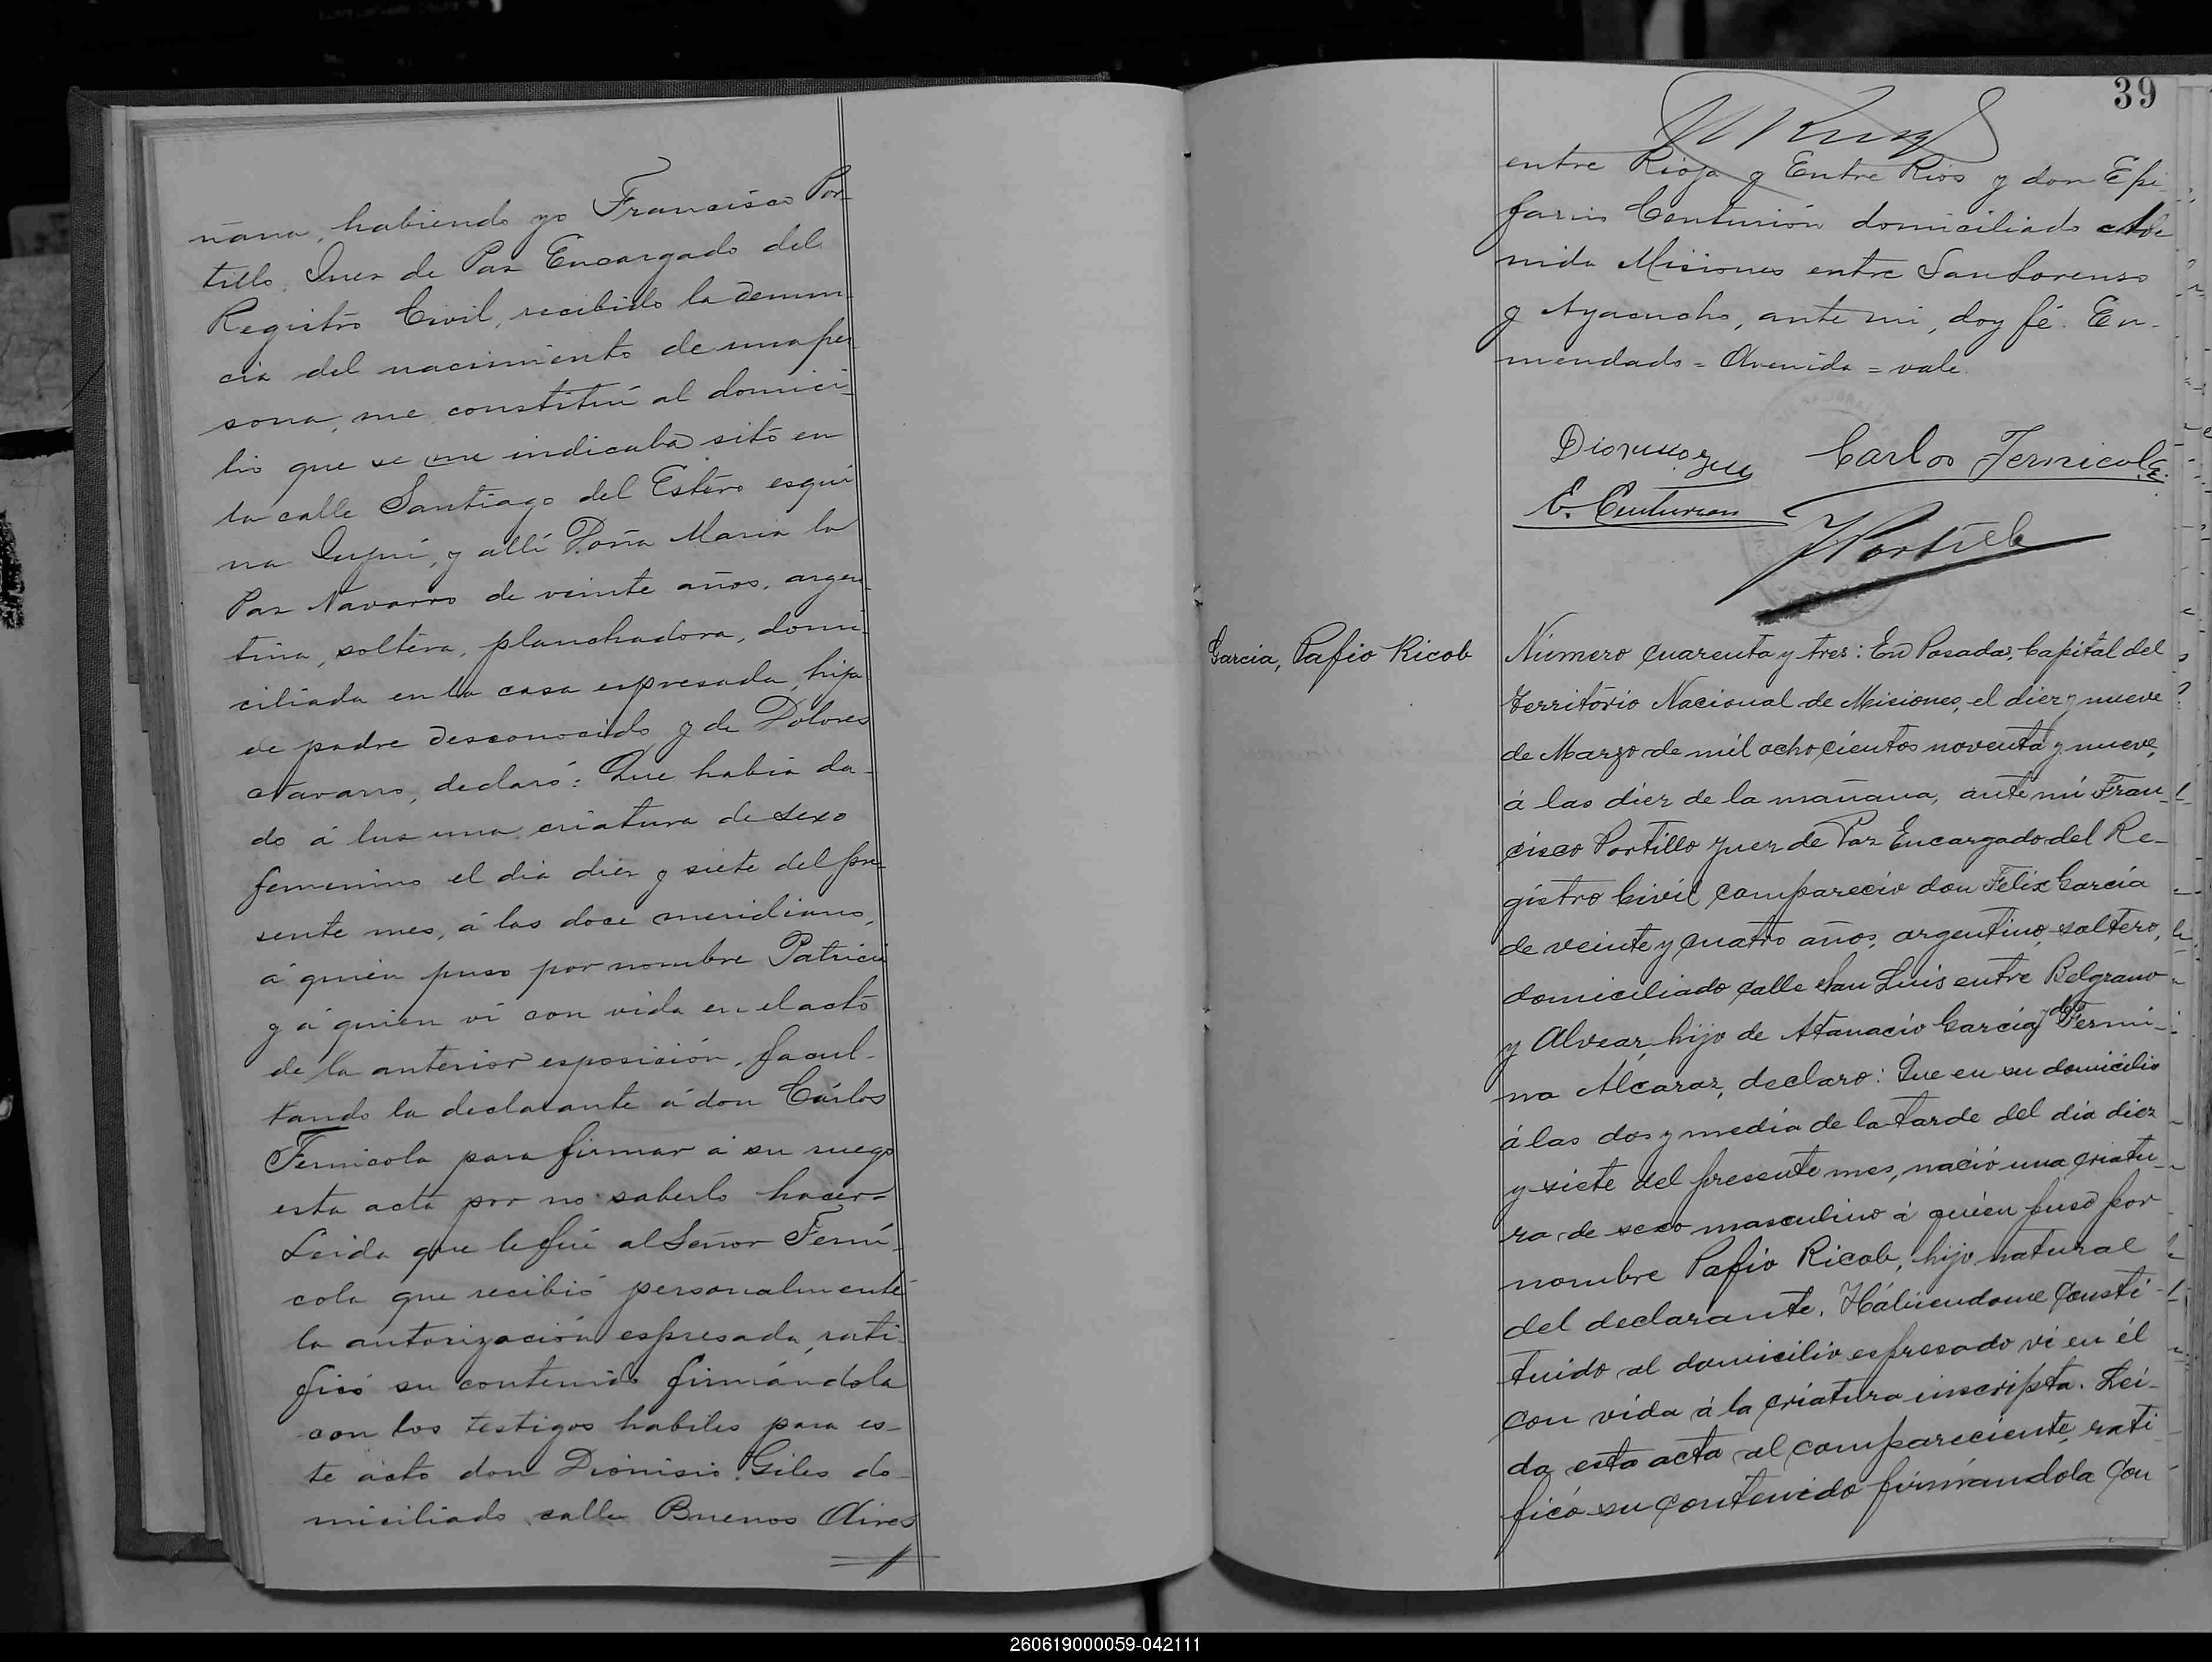 ñana, habiendo yo Francisco Por-
tillo, Juez de Paz Encargado del
Registro Civil, recibido la denun-
cia del nacimiento de una per
sona, me constituí al domici-
lio que se me indicaba sito en
la calle Santiago del Estero esqui
na Jujuí, y allí Doña Maria la
Paz Navarro de veinte años, argen
tina, soltera, planchadora, domi-
ciliada en la casa espresada, hija
de padre desconocido y de Dolores
Navarro, declaró: Que habia da-
do á luz una criatura de sexo
femenino el dia diez y siete del pre
sente mes, á las doce meridiano,
á quien puso por nombre Patricia
y á quien ví con vida en el acto
de la anterior esposición, facul-
tando la declarante á don Cárlos
Fernicola para firmar á su ruego
esta acta por no saberlo hacer=
Leida que le fué al Señor Ferni-
cola que recibió personalmente
la autorización espresada, rati-
ficó su contenido firmándola
con los testigos habiles para es-
te acto don Dionisio Giles do-
miciliado calle Buenos Aires
39
entre Rioja y Entre Rios y don Epi-
fanio Centurión domiciliado Ave
nida Misiones entre San Lorenzo
y Ayacucho, ante mi, doy fé. En-
mendado = Avenida = vale.
Carlos Fernicola
E. Centurion
Portillo
Garcia, Pafio Ricob
Número cuarenta y tres: En Posadas, Capital del
Territorio Nacional de Misiones, el diez y nueve
de Marzo de mil ochocientos noventa y nueve,
á las diez de la mañana, ante mi Fran-
cisco Portillo Juez de Paz Encargado del Re-
gistro Civil compareció don Felix Garcia
de veinte y cuatro años, argentino, soltero,
domiciliado calle San Luis entre Belgrano
y Alvear, hijo de Atanacio Garcia y de Fermi-
na Alcaraz, declaro: Que en su domicilio
á las dos y media de la tarde del dia diez
y siete del presente mes, nació una criatu-
ra de sexo masculino á quien puso por
nombre Pafio Ricob, hijo natural
del declarante. Habiendome consti-
tuido al domicilio espresado ví en él
con vida á la criatura inscripta. Lei-
da esta acta al compareciente, rati
ficó su contenido firmándola con
260619000059-042111